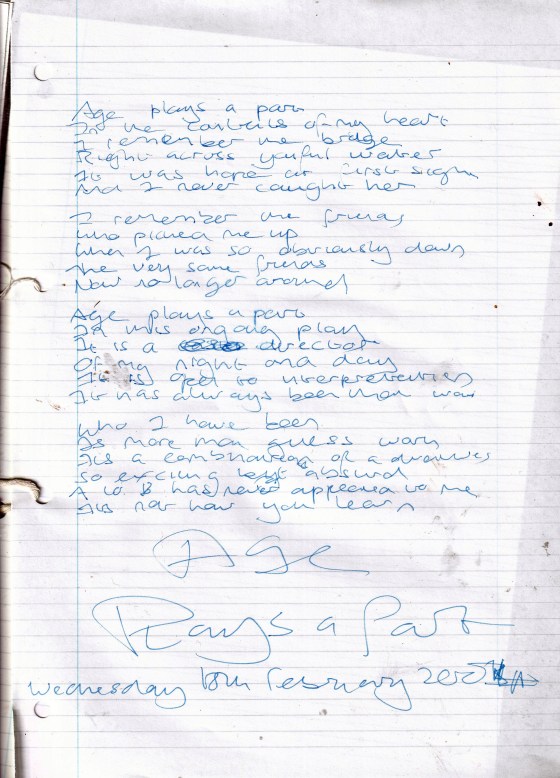 Age plays a part
In the contents of my heart
I remember the bridge
Right across youful water
It was hope at first sight
And I never caught her
I remember the friends
who picked me up
when I was so obviously down
the very same friends
Now no longer around
Age plays a part
In this ongoing play
It is a director
Of my night and day
It is open to interpretation
It has always been that way
who I have been
Is more than guess work
Its a combination of a
so exciting yet absurd
A to B has never appealed to me
Its not how you learn
Age
Plays a Part
wednesday 18th February